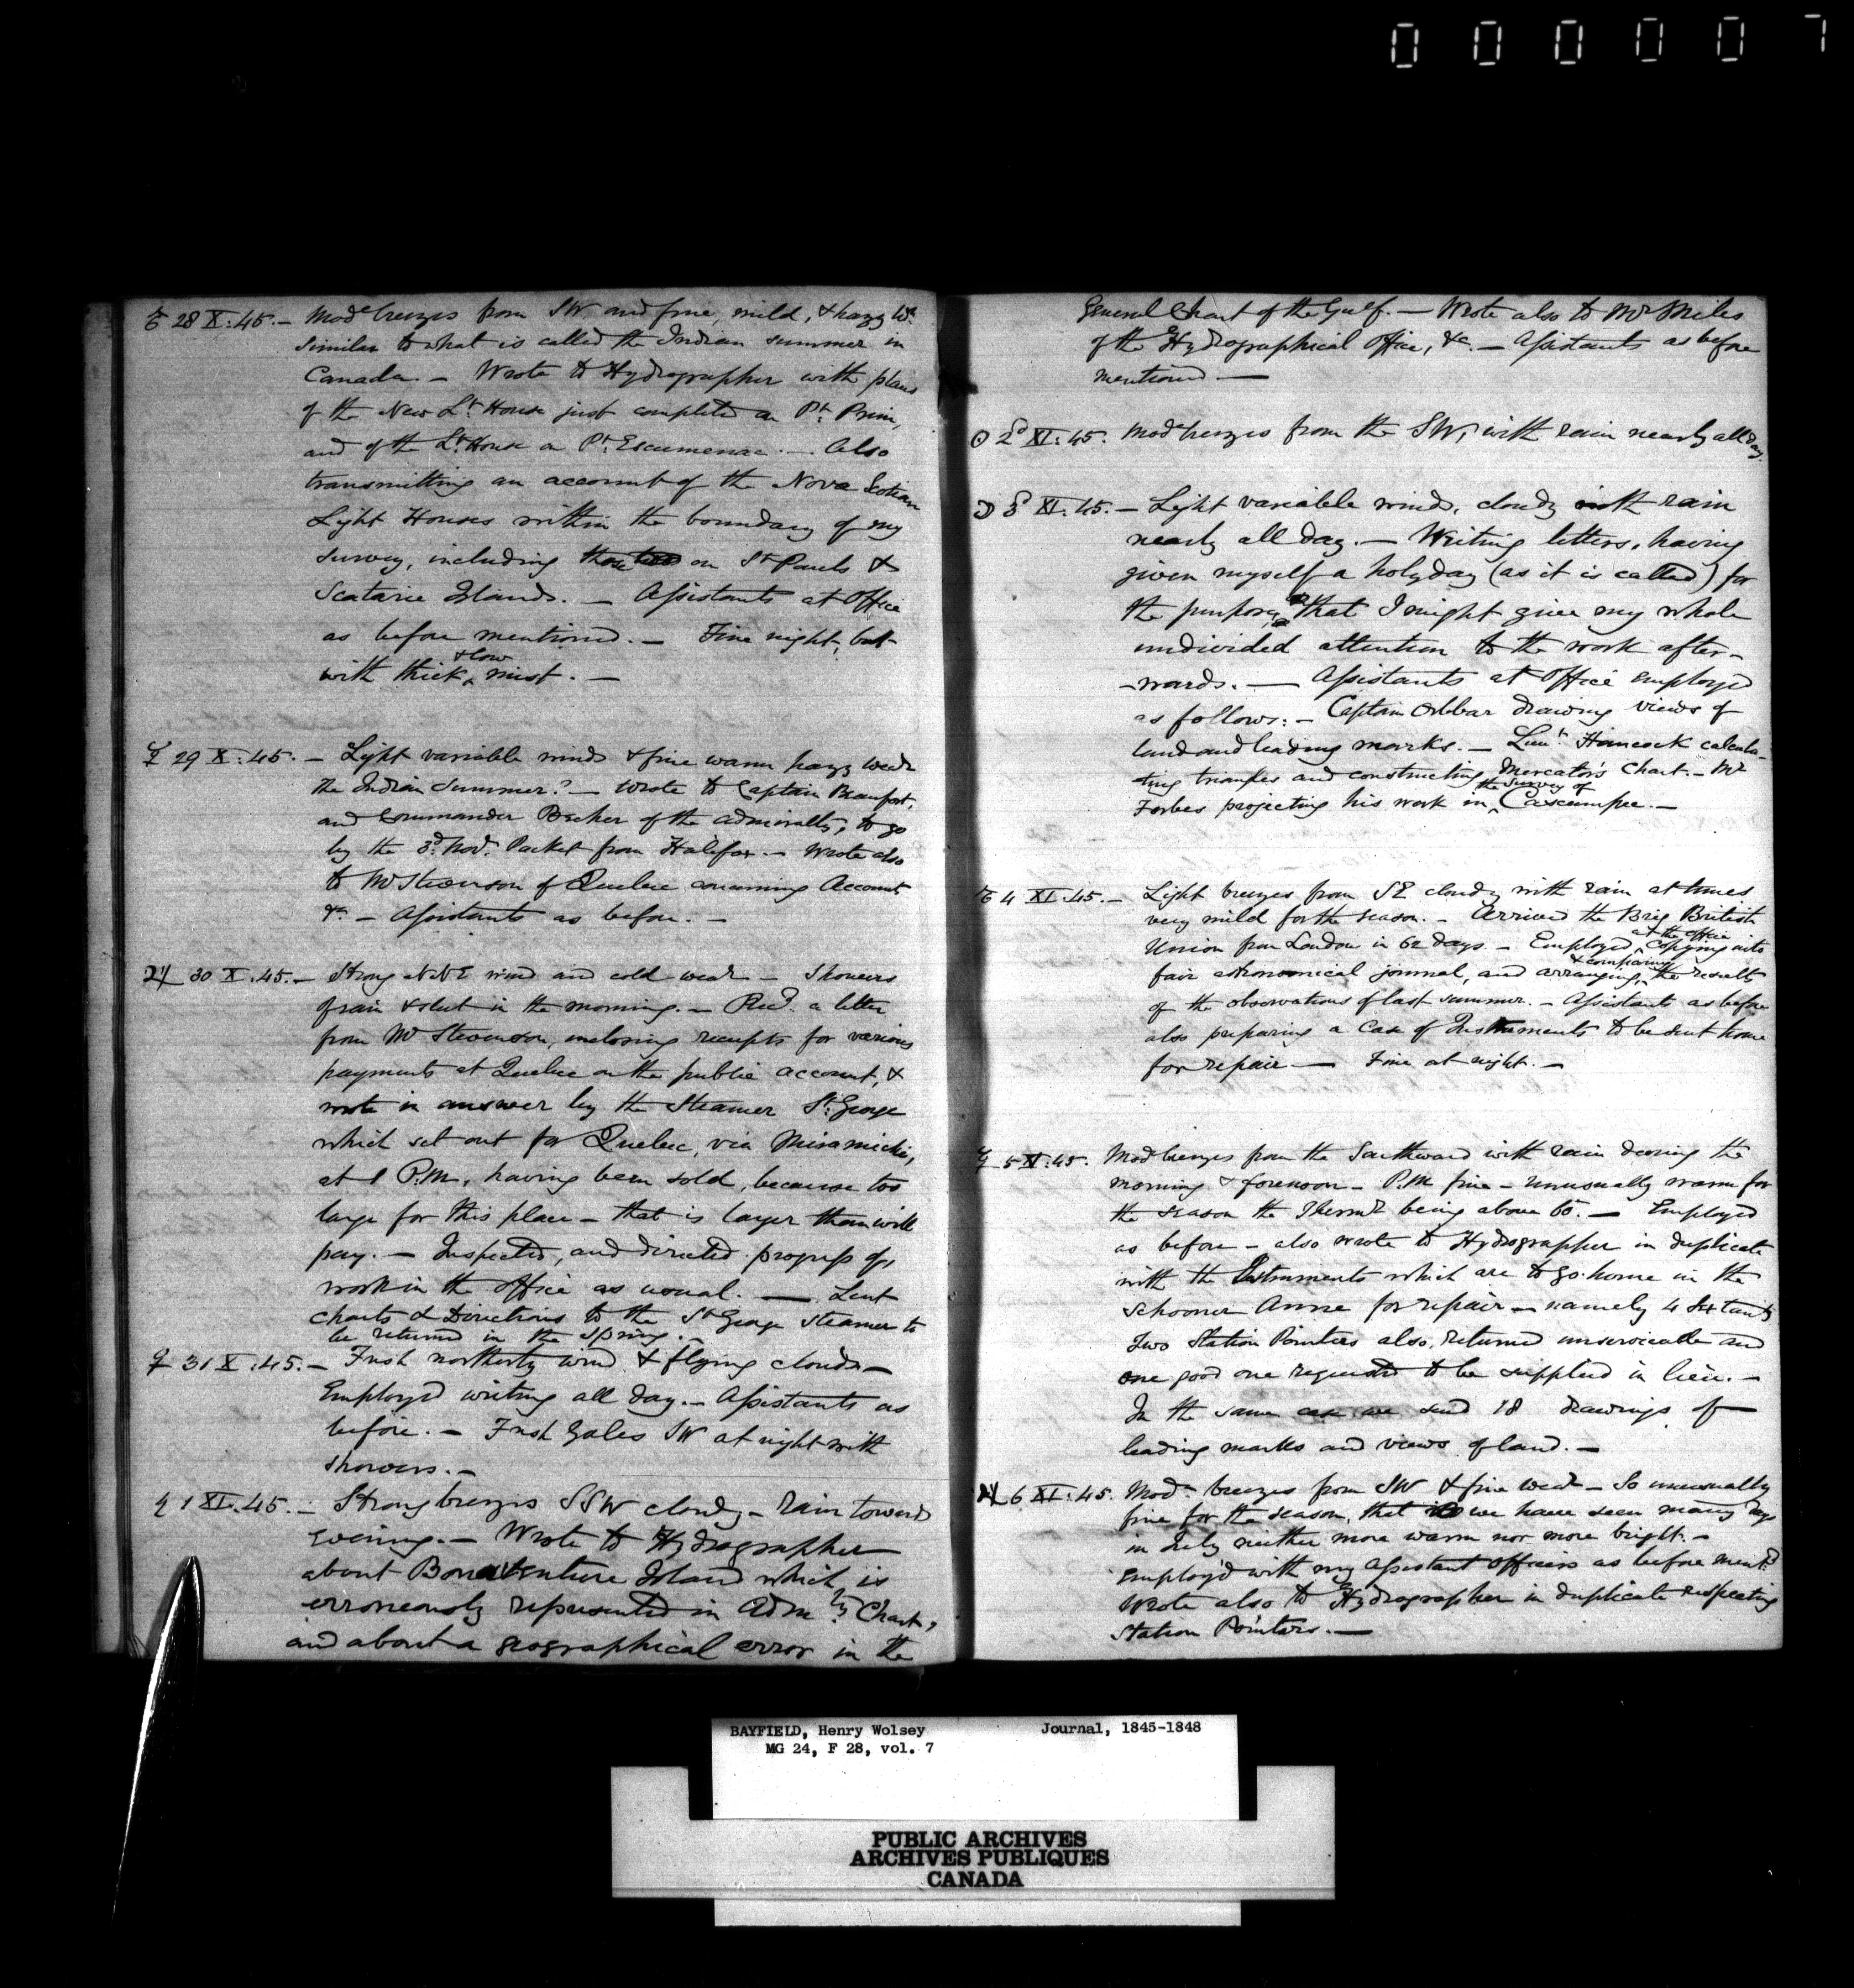 000007
28 X:45. — Mod breezes from SW and fine, mild, & hazy Wr.
similar to what is called the Indian summer in
Canada. — Wrote to Hydrographer with plans
of the New Lt. House just completed on Pt. Prim,
and of the Lt. House on Pt. Escumenac. — Also
transmitting an account of the Nova Scotian
Light Houses within the boundary of my
survey, including those on St Pauls &
Scatarie Islands. — Assistants at Office
as before mentioned. — Fine night, but
with thick & low mist. —
☿ 29 X:45. — Light variable winds & fine warm hazy wear
the Indian Summer? — Wrote to Captain Beaufort,
and Commander Becher of the Admiralty, to go
by the 3d. Nov. Packet from Halifax. — Wrote also
to Mr Stevenson of Quebec concerning Account
&c — Assistants as before. —
♃ 30 X:45. — Strong NNE wind and cold wear — Showers
of rain & sleet in the morning. — Recd. a letter
from Mr Stevenson, inclosing receipts for various
payments at Quebec on the public account, &
wrote in answer by the Steamer St. George
which set out for Quebec, via Miramichi,
at 1 P.M., having been sold, because too
large for this place — that is larger than will
pay. — Inspected, and directed progress of,
work in the office as usual. — Lent
Charts & Directions to the St George Steamer to
be returned in the spring. —
♀ 31 X:45. — Fresh northerly wind & flying clouds —
Employed writing all day. — Assistants as
before. — Fresh Gales SW at night with
showers. —
♄ 1 XI:45. — Strong breezes SSW cloudy — Rain towards
evening. — Wrote to Hydrographer
about Bonaventure Island which is
erroneously represented in Admty Chart,
and about a geographical error in the
General Chart of the Gulf. — Wrote also to Mr Miles
of the Hydrographical Office, &c. — Assistants as before
mentioned. —
☉ 2d XI:45. Mod breezes from the SW, with rain nearly all day.
☽ 3d XI:45. — Light variable winds, cloudy with rain
nearly all day. — Writing letters, having
given myself a holyday (as it is called) for
the purpose, that I might give my whole
undivided attention to the work after-
-wards. — Assistants at Office employed
as follows: — Captain Orlebar drawing views of
land and leading marks. — Lieut. Hancock calcula-
ting triangles and constructing Mercator's Chart. — Mr
Forbes projecting his work in the survey of Cascumpec. —
♂ 4 XI:45. — Light breezes from SE cloudy with rain at times
very mild for the season. — Arrived the Brig British
Union from London in 62 days. — Employed at the office copying into
fair astronomical journal, and arranging & comparing the results
of the observations of last summer. — Assistants as before
also preparing a Case of Instruments to be sent home
for repair — Fine at night. —
☿ 5 XI:45. Mod breezes from the Southward with rain during the
morning & forenoon — P.M. fine — unusually warm for
the season the Thermr being above 60°. — Employed
as before — also wrote to Hydrographer in duplicate
with the Instruments which are to go home in the
Schooner Anne for repair — namely 4 Sextants
Two Station Pointers also returned unserviceable and
one good one requested to be supplied in lieu. —
In the same case we send 18 drawings of
leading marks and views of land. —
♃ 6 XI:45. Mod. breezes from SW & fine wear — So unusually
fine for the season, that we have seen many days
in July neither more warm nor more bright. —
Employ'd with my Assistant Officers as before mentd.
Wrote also to Hydrographer in duplicate respecting
Station Pointers. —
BAYFIELD, Henry Wolsey Journal, 1845-1848
MG 24, F 28, vol. 7
PUBLIC ARCHIVES
ARCHIVES PUBLIQUES
CANADA